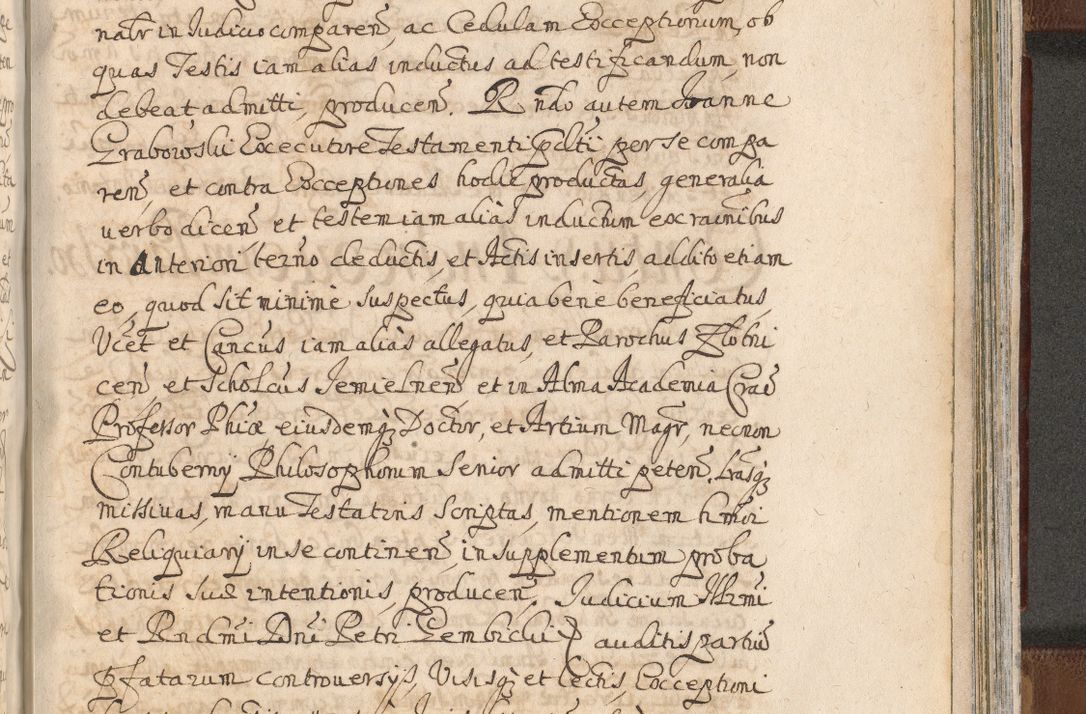 natr in Iudicio comparen, ac Cedulam Exceptionum, ob
quas Testis iam alias inductus ad testificandum, non
debeat admitti, producen. Rndo autem Ioanne
Grabowski Executore Testamenti pdti per se compa
ren, et contra Exceptiones hodie productas, generalia
uerbo dicen et testem iam alias inductum ex rainibus
in Anteriori terno deductis, et Actis insertis, addito etiam
eo, quod sit minime suspectus, quia bene beneficiatus,
Vcet et Cancus iam alias allegatus, et Parochus Zlotni
cen, et Scholcus Iemielnen, et in Alma Academia Crac
Professor Phiæ eiusdemq Doctor, et Artium Magr, necnon
Contubernij Philosophorum Senior admitti peten. Lrasq
missiuas, manu Testatris scriptas, mentionem hmoi
Reliquiarij in se continen, in supplementum proba
tionis suæ intentionis, producen. Iudicium Illrmi
et Rndmi Dni Petri Gembicki auditis partiu
pfatarum controuersijs, Visisq et Lectis, Exceptioni